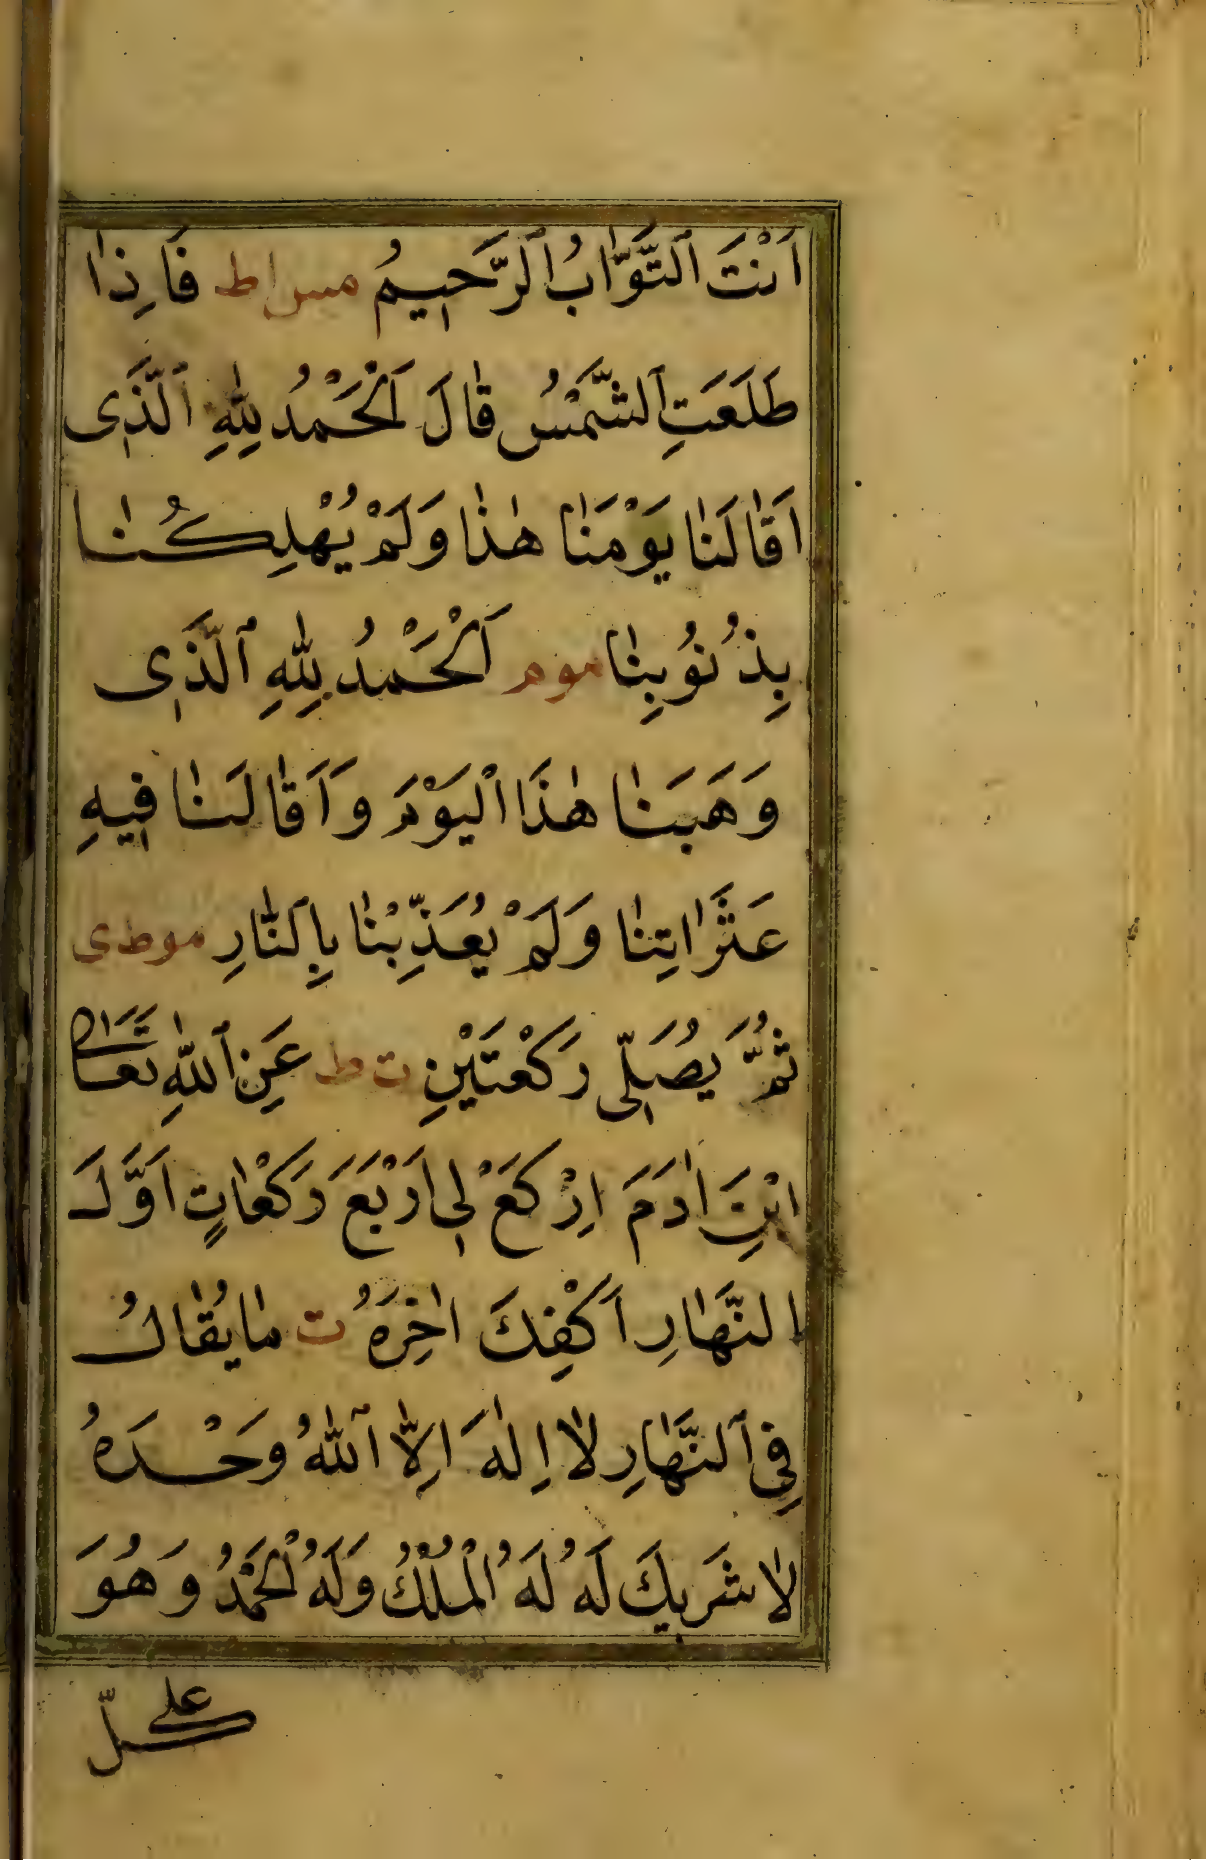 اَنْتَ اَلتَّوَّابُ اَلرَّحِيمُ مس اط فَاِذَا
طَلَعَتِ اَلشَّمْسُ قَالَ اَلْحَمْدُ لِلّٰهِ اَلَّذِى
اَقَالَنَا يَوْمَنَا هٰذَا وَلَمْ يُهْلِكُنَا
بِذُنُوبِنَا موم اَلْحَمْدُ لِلّٰهِ اَلَّذِى
وَهَبَنَا هٰذَا الْيَوْمَ وَاَقَالَنَا فِيهِ
عَثَرَاتِنَا وَلَمْ يُعَذِّبْنَا بِالنَّارِ موطى
ثُمَّ يُصَلِّى رَكْعَتَيْنِ ت ط عَنِ اَللّٰهِ تَعَالٰى
ابْنَ اٰدَمَ اِرْكَعْ لِى اَرْبَعَ رَكْعَاتٍ اَوَّلَ
النَّهَارِ اَكْفِكَ اٰخِرَهُ ت مَا يُقَالُ
فِى اَلنَّهَارِ لَا اِلٰهَ اِلَّا اَللّٰهُ وَحْدَهُ
لَا شَرِيكَ لَهُ لَهُ الْمُلْكُ وَلَهُ الْحَمْدُ وَهُوَ
على كلّ